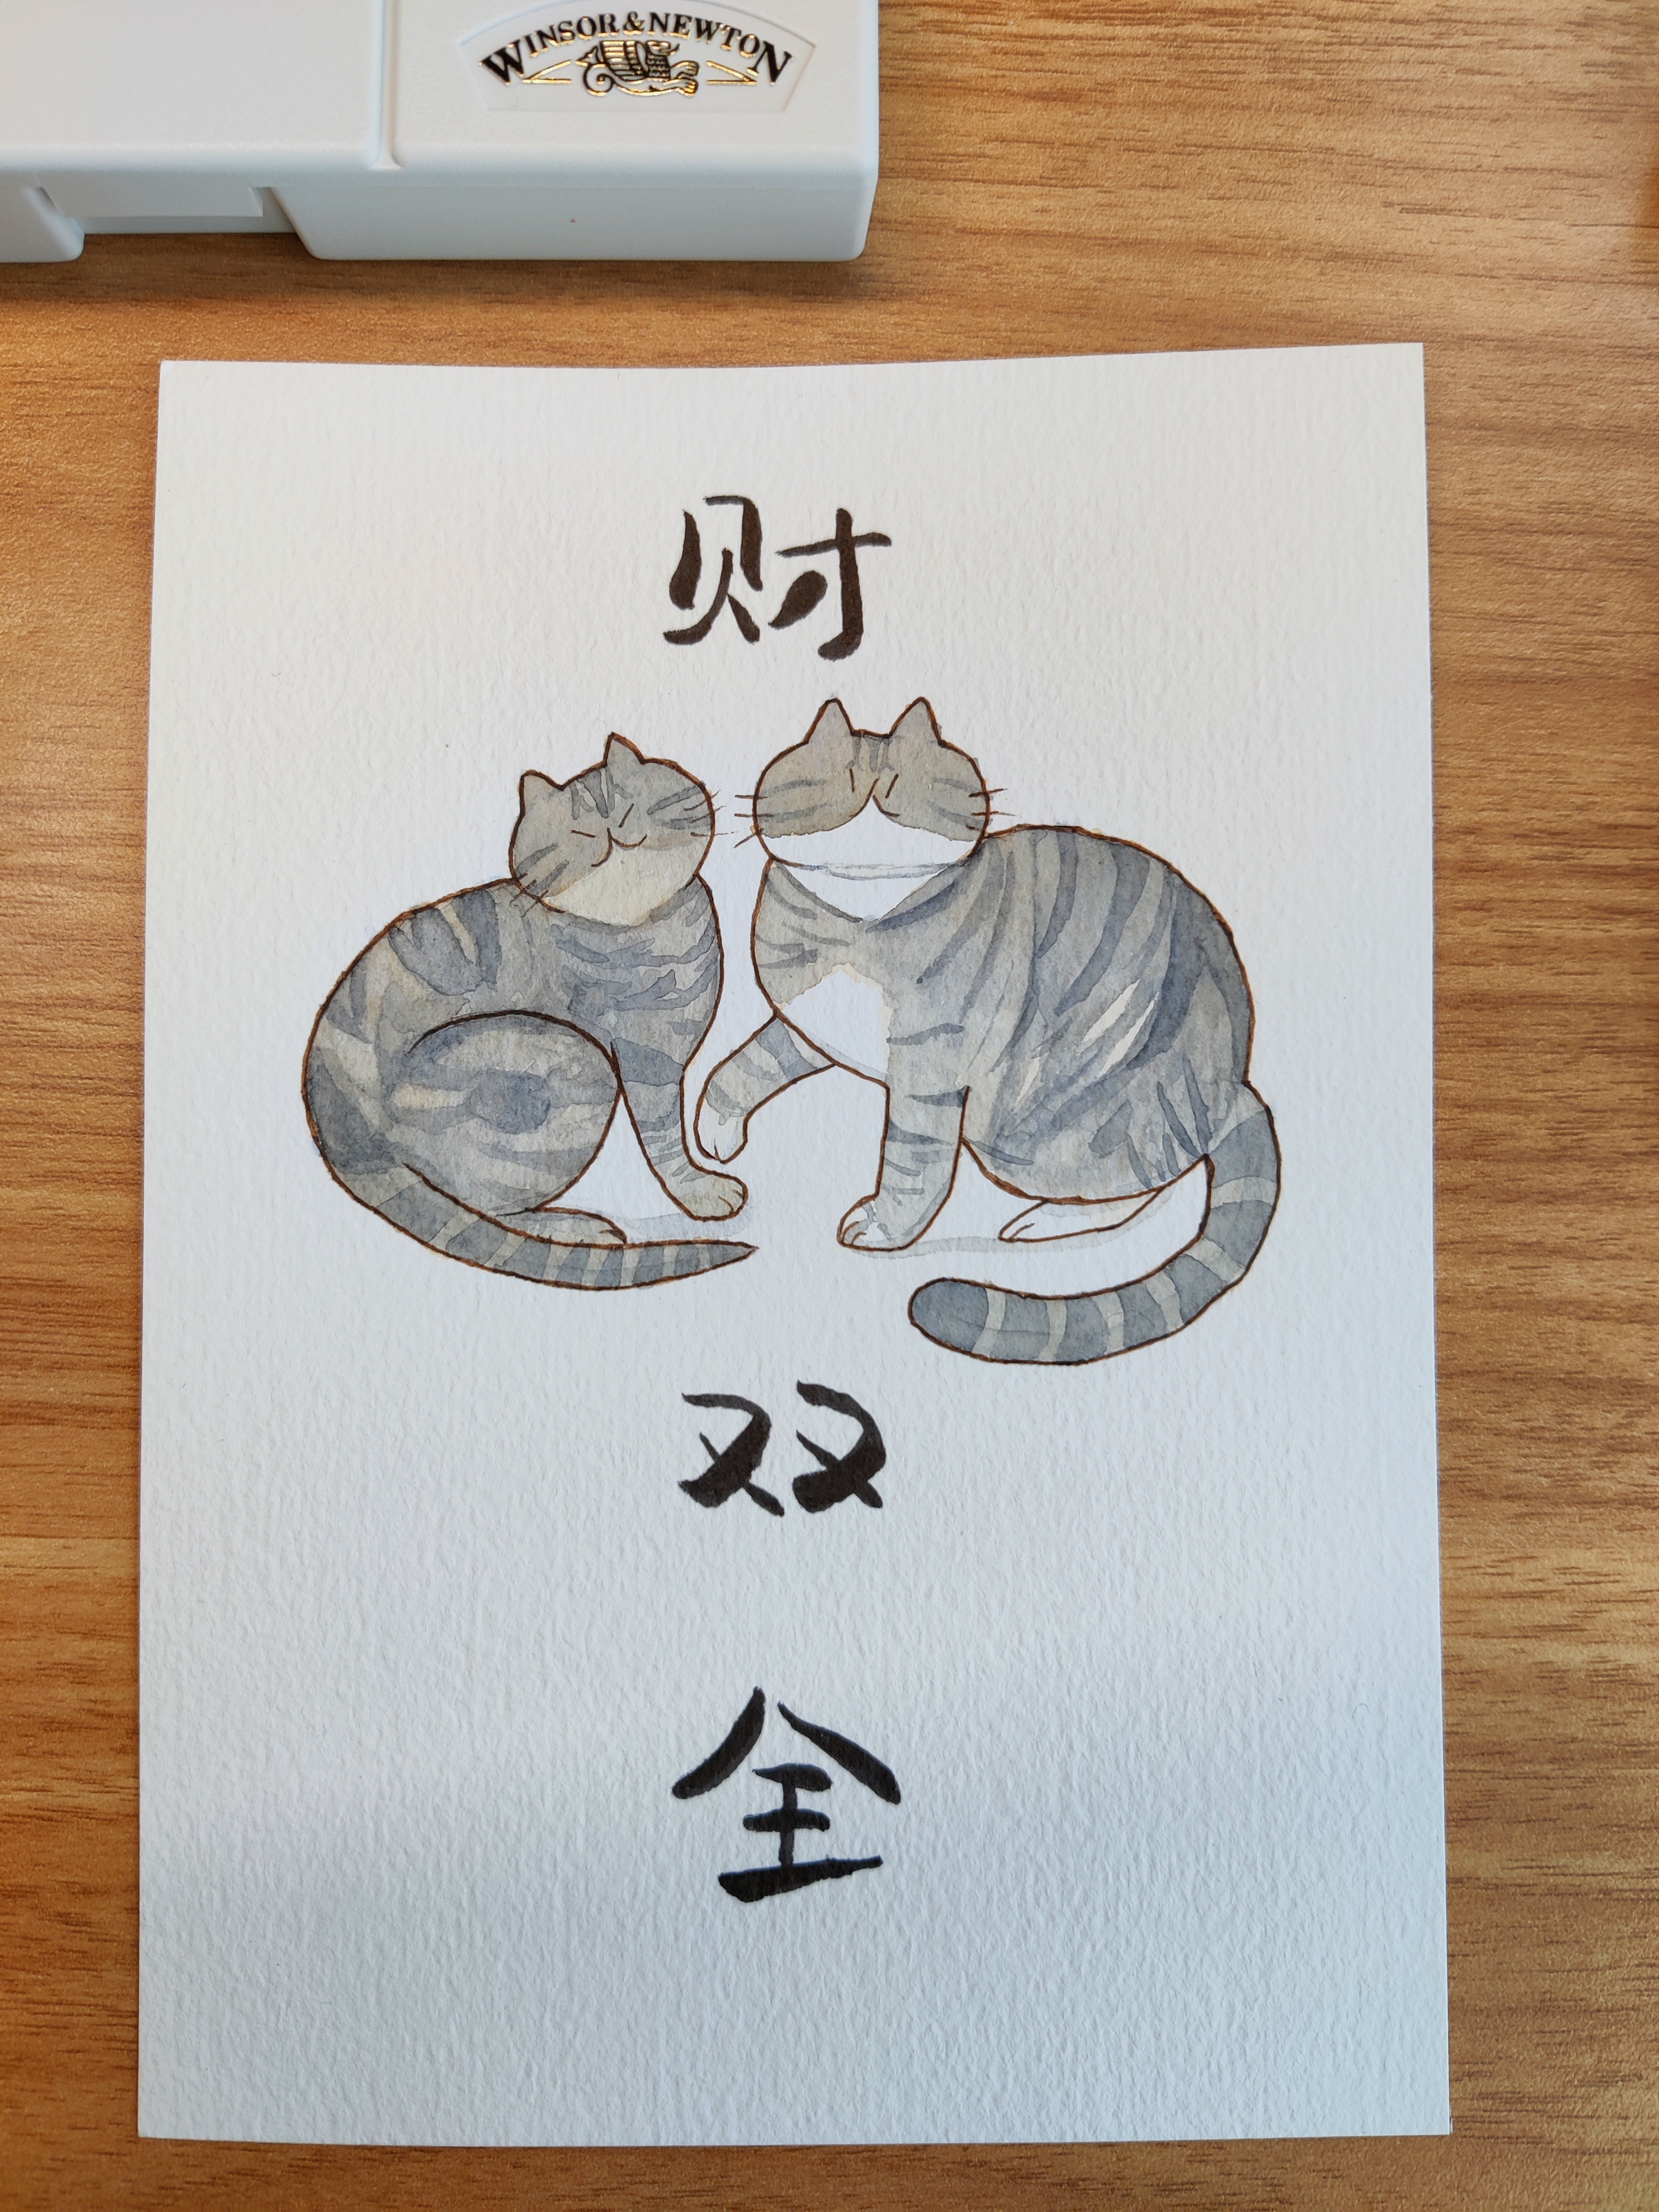 WINSOR & NEWTON
财
双
全